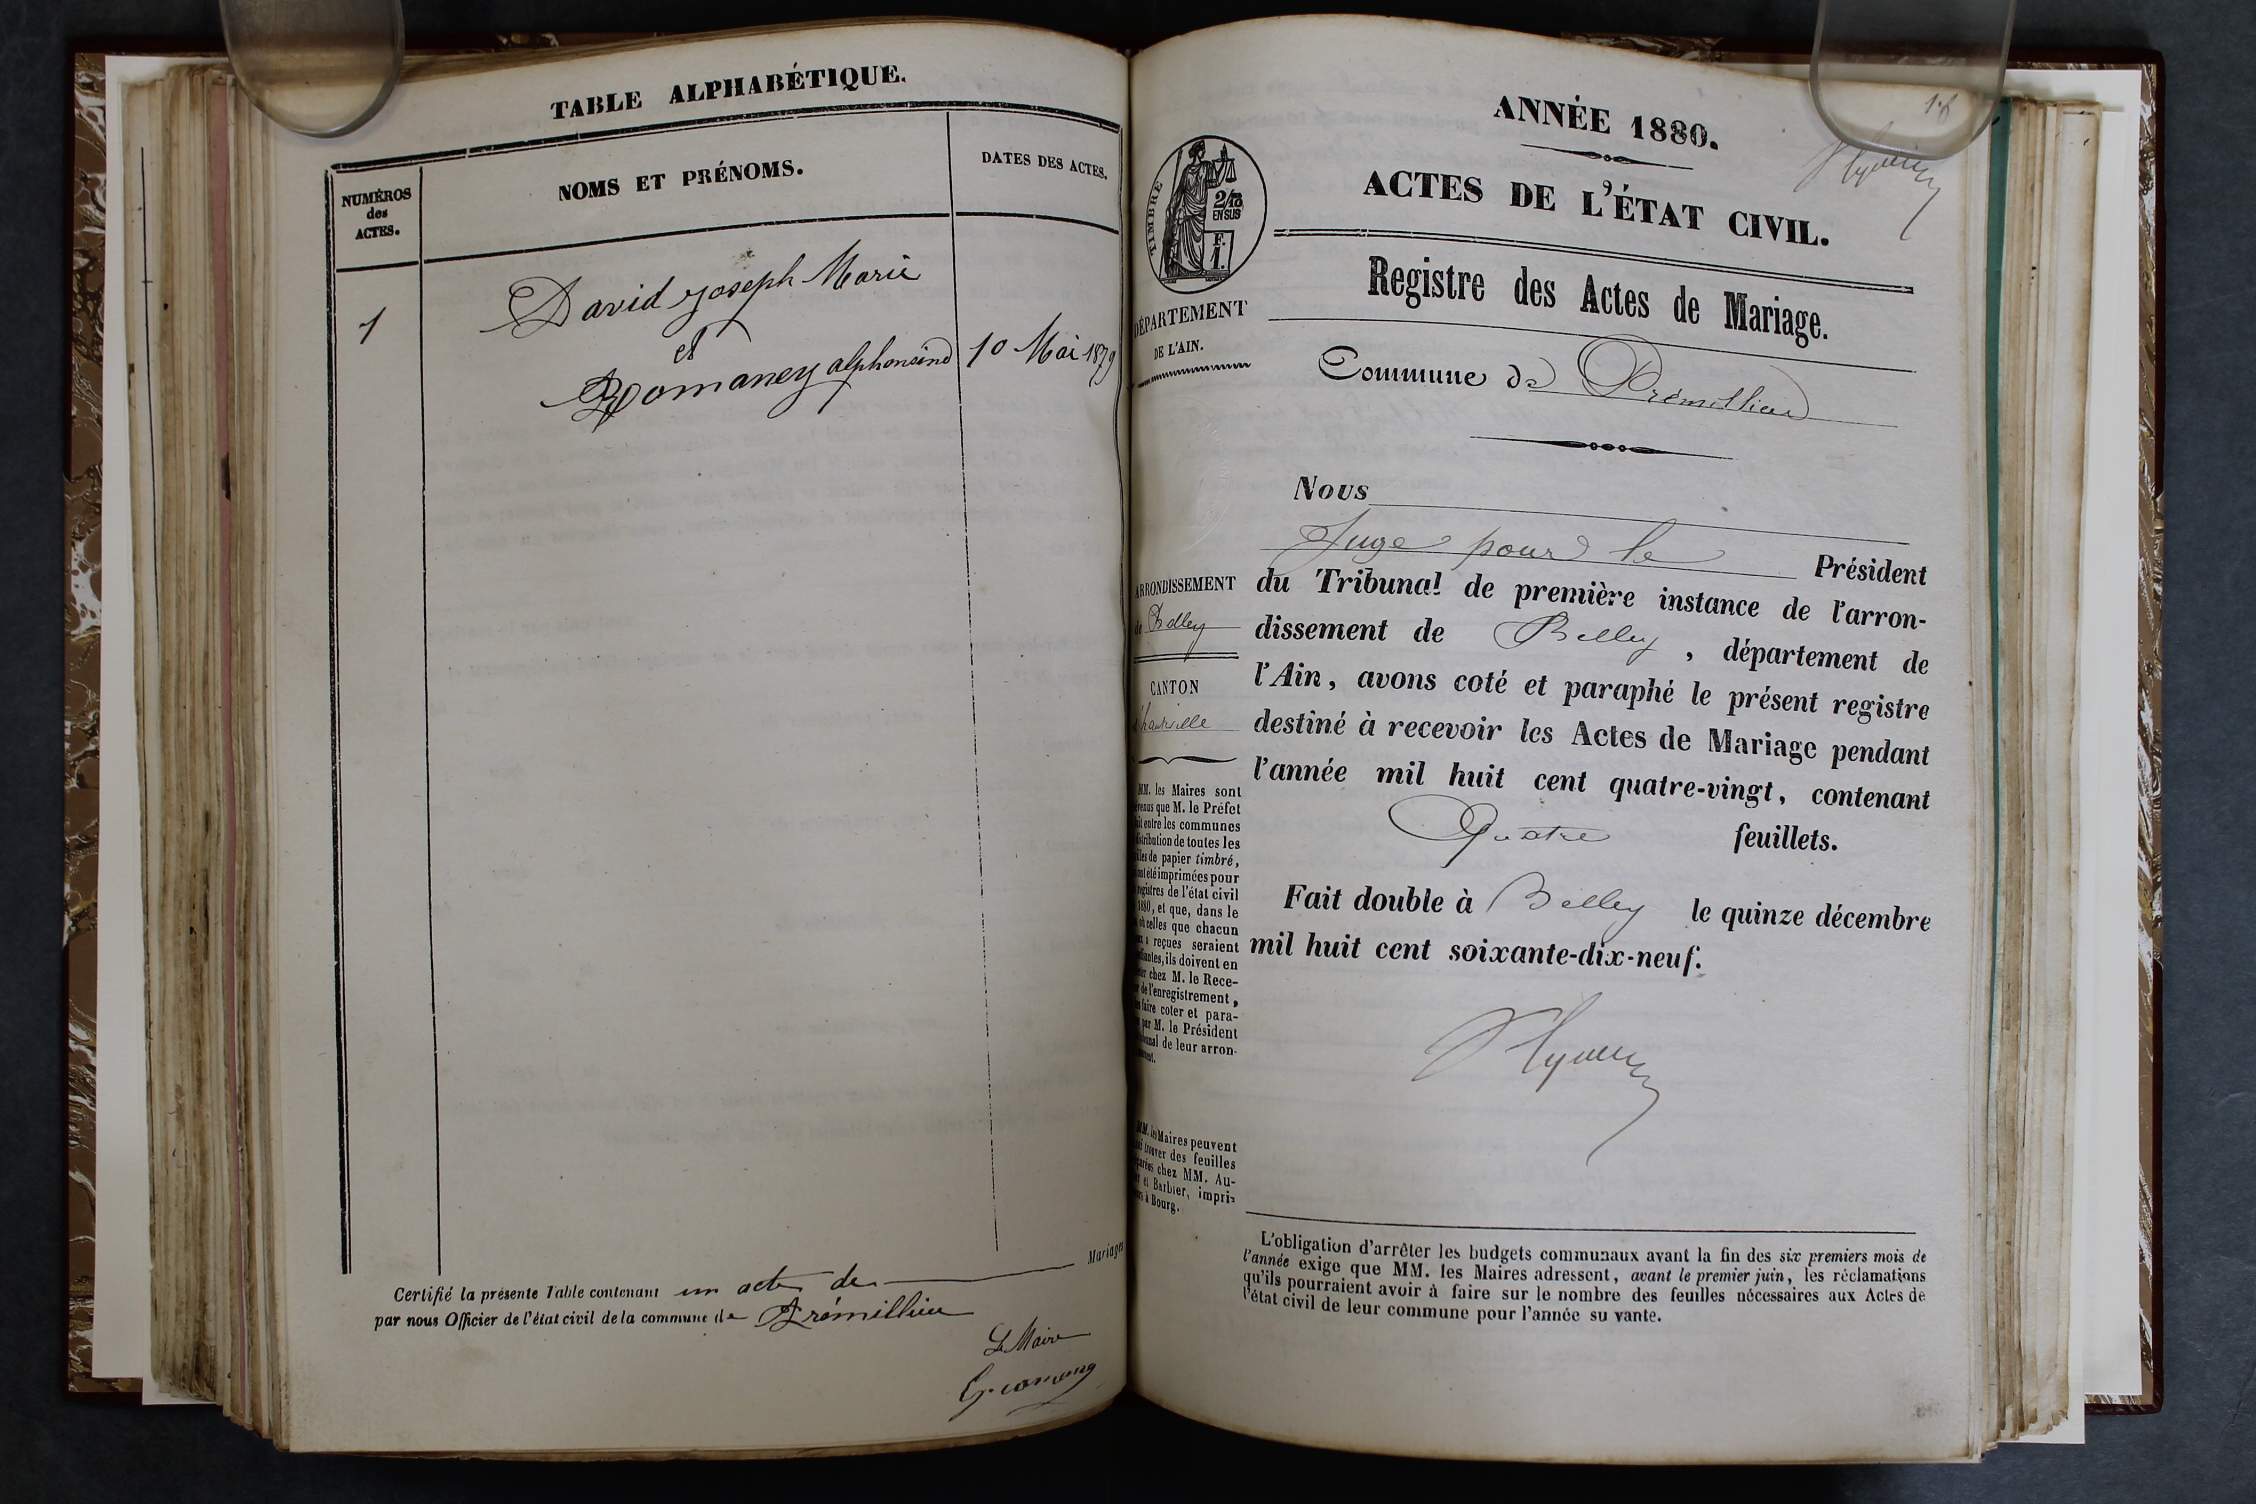 TABLE ALPHABÉTIQUE.
NUMÉROS
des
ACTES.
NOMS ET PRÉNOMS.
DATES DES ACTES.
1
David Joseph Marie
et
Romaney alphonsine
10 Mai 1879
Certifié la présente Table contenant un acte de Mariages
par nous Officier de l'état civil de la commune de Prémillieu
Le Maire
ANNÉE 1880.
ACTES DE L'ÉTAT CIVIL.
TIMBRE
2/10
EN SUS
F.
1.
DÉPARTEMENT
DE L'AIN.
Registre des Actes de Mariage.
Commune de Prémillieu
Nous
Juge pour le Président
du Tribunal de première instance de l'arron-
dissement de Belley, département de
l'Ain, avons coté et paraphé le présent registre
destiné à recevoir les Actes de Mariage pendant
l'année mil huit cent quatre-vingt, contenant
Quatre feuillets.
Fait double à Belley le quinze décembre
mil huit cent soixante-dix-neuf.
ARRONDISSEMENT
de Belley
CANTON
d'hauteville
MM. les Maires sont
que M. le Préfet
entre les communes
distribution de toutes les
de papier timbré,
ont été imprimées pour
registres de l'état civil
1880, et que, dans le
où celles que chacun
a reçues seraient
ils doivent en
chez M. le Rece-
de l'enregistrement,
faire coter et para-
par M. le Président
de leur arron-
MM. les Maires peuvent
trouver des feuilles
chez MM. Au-
et Barbier, impri-
à Bourg.
L'obligation d'arrêter les budgets communaux avant la fin des six premiers mois de
l'année exige que MM. les Maires adressent, avant le premier juin, les réclamations
qu'ils pourraient avoir à faire sur le nombre des feuilles nécessaires aux Actes de
l'état civil de leur commune pour l'année su vante.